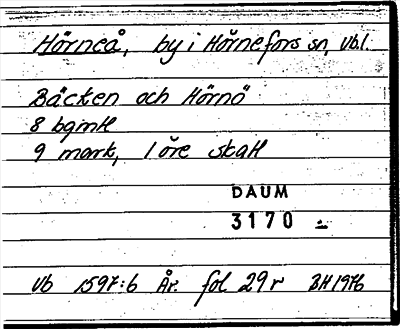 Hörneå, by i Hörnefors sn, Vb.l.
Bäcken och Hörnö
8 bgmtl
9 mark, 1 öre skatt
DAUM
3170
Vb 1597:6 År. fol 29r BH 1976